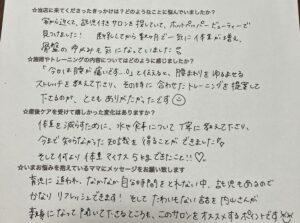 ☆当店に来てくださったきっかけは?どのようなことに悩んでいましたか?
家から近くて、託児付きサロンを探していて、ホットペッパービューティーで
見つけました! 断乳してから数ヶ月で一気に体重が増え、
骨盤の歪みも気になっていました
☆施術やトレーニングの内容についてはどのように感じましたか?
「今日は腰が痛いです…」と伝えると、腰まわりをゆるませる
ストレッチを教えてくれたり、その日に合わせたトレーニングを提案して
下さるのが、とてもありがたかったです
☆産後ケアを受けて嬉しかった変化はありますか?
体重を減らすために、水や食事について丁寧に教えて下さり、
今まで知らなかった知識を得ることができました
そして何より体重マイナス5kgできたこと!!
☆いまお悩みを抱えているママにメッセージをお願い致します
育児に追われ、なかなか自分時間がとれない中、託児もあるので
かなりリフレッシュできます! そして、たわいもない話を内山さんが
親身になって聞いて下さるところも、このサロンをオススメするポイントです